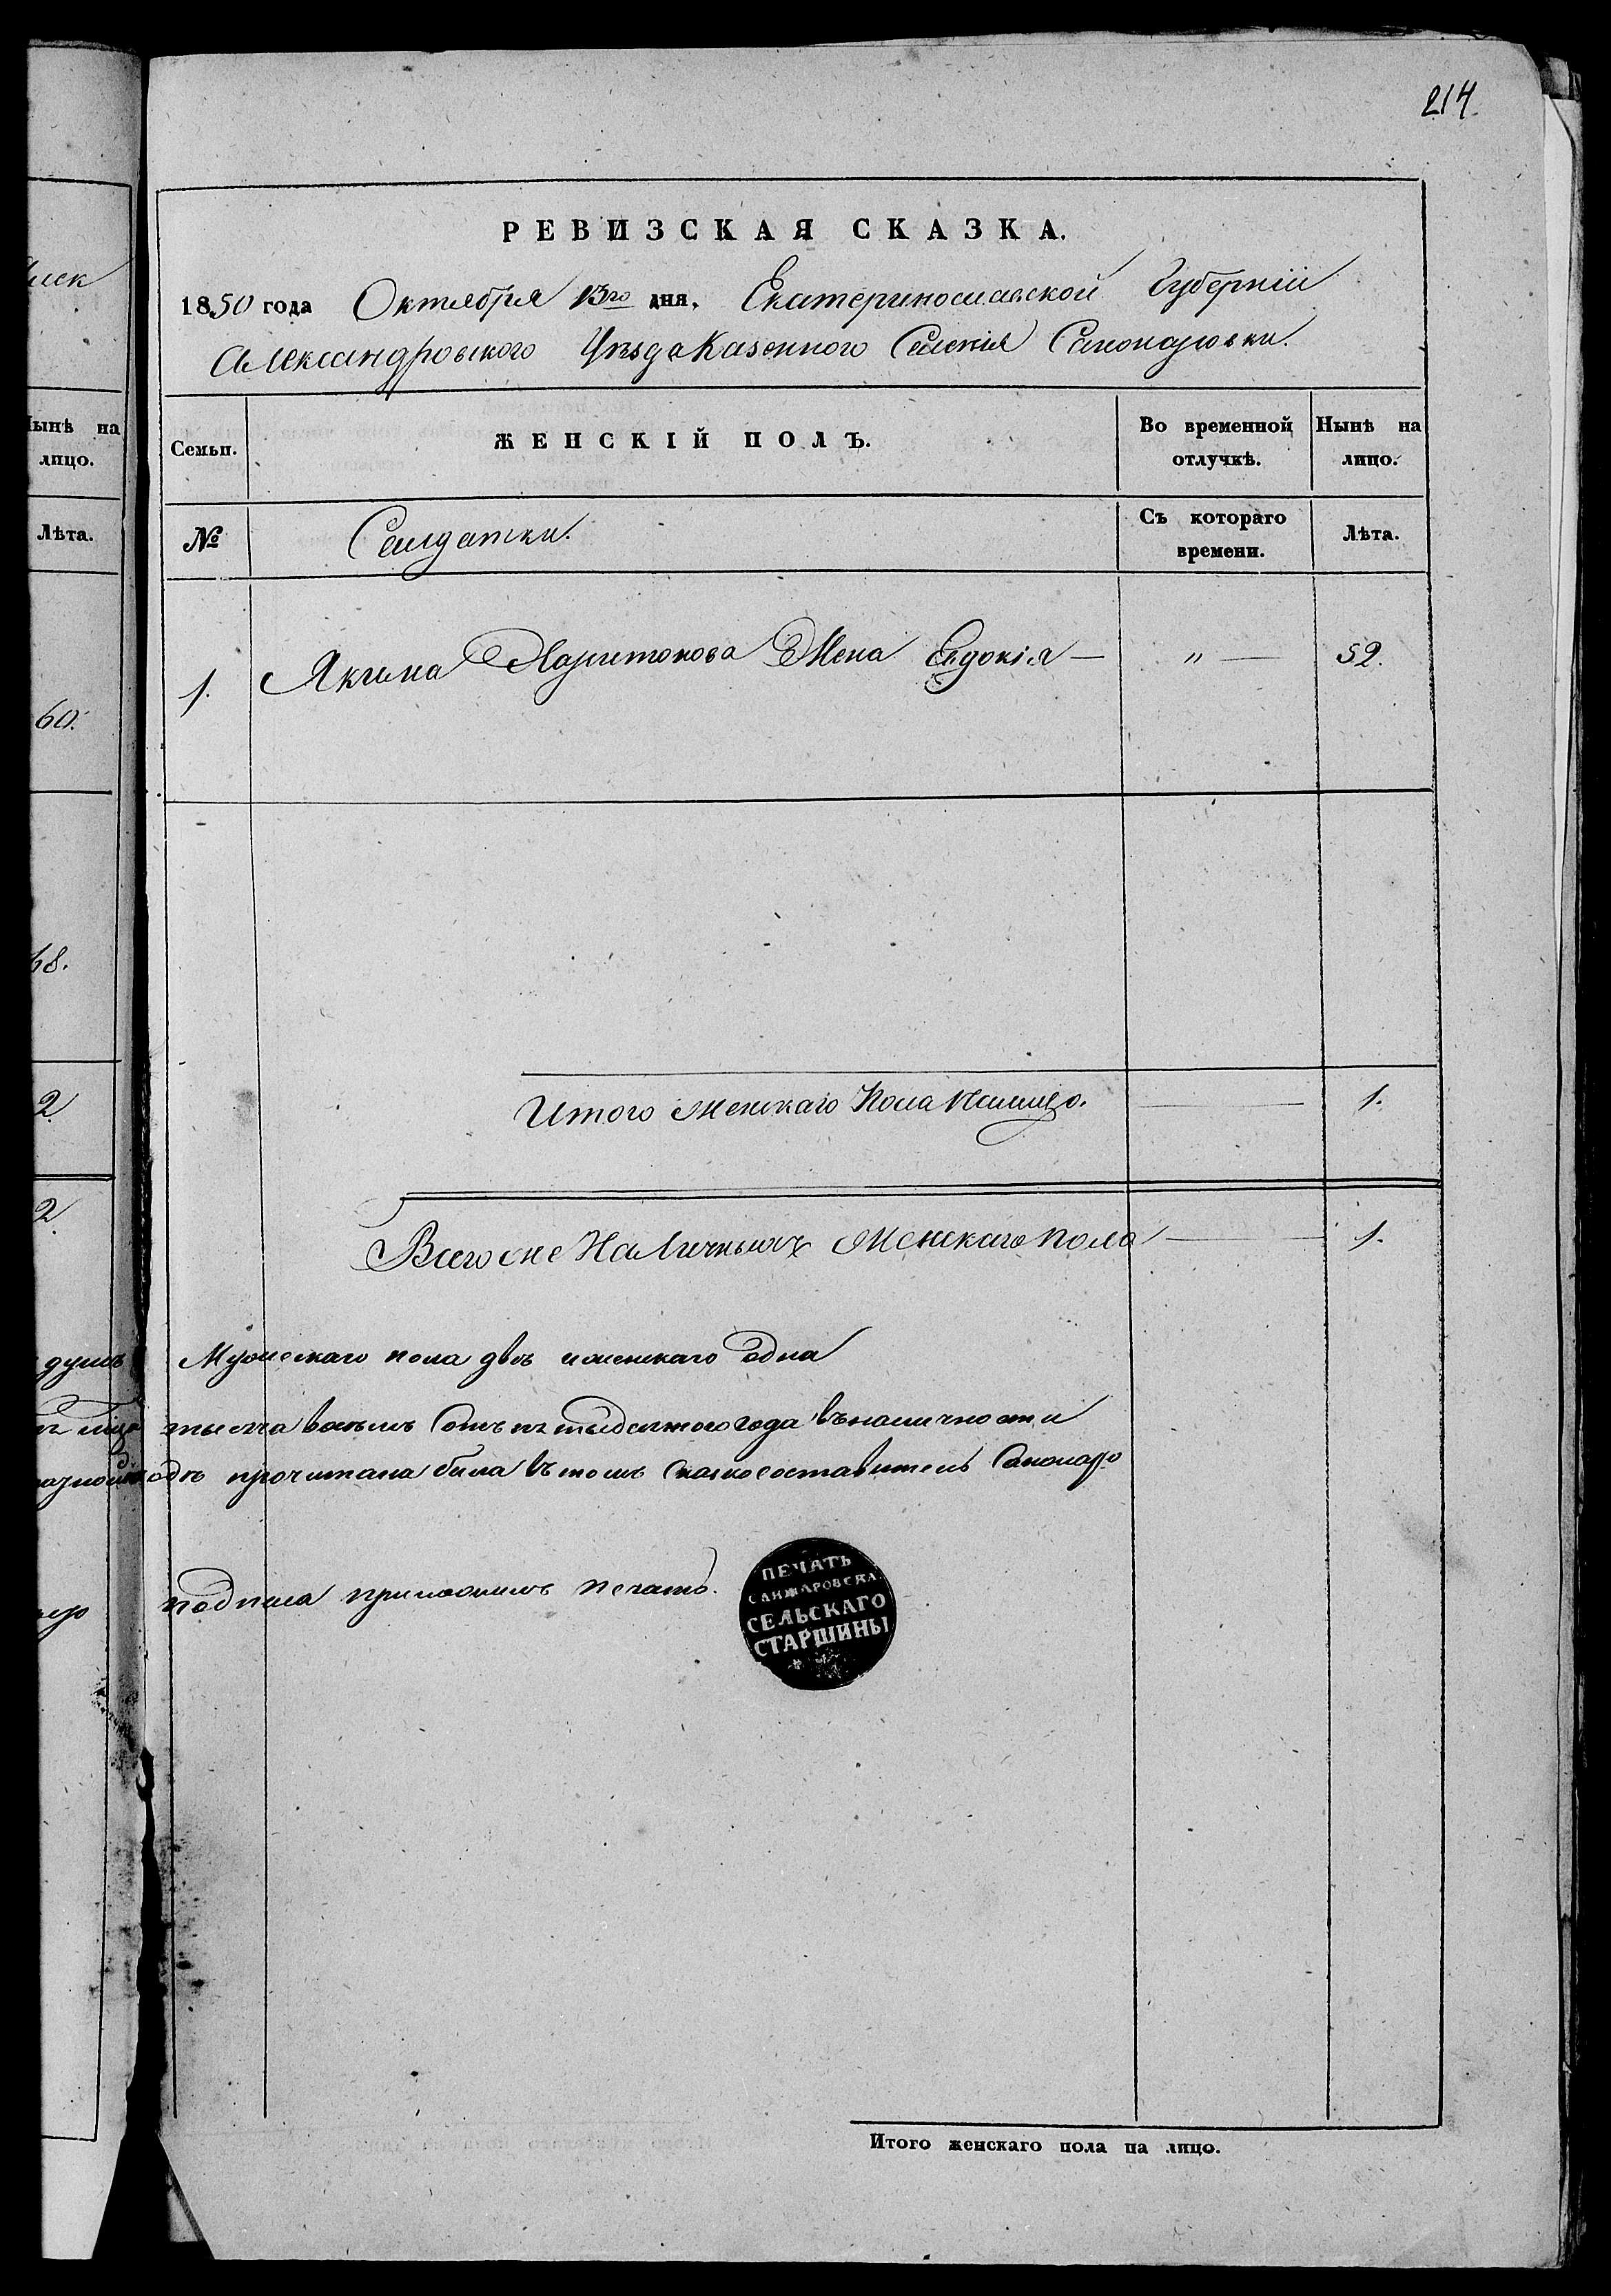 214.
РЕВИЗСКАЯ СКАЗКА.
1850 года Октября 13го дня. Екатеринославской Губернiи
Александровского Уѣзда Казенного Селенiя
Семьи.
ЖЕНСКIЙ ПОЛЪ.
Во временной отлучкѣ.
Нынѣ на лицо.
№
Салдатки.
Съ котораго времени.
Лѣта.
1. Якима Харитонова Жена Евдокiя — " — 52.
Итого женскаго Пола налицо. — 1.
Всего же Наличныхъ Женскаго пола — 1.
Мужескаго пола двѣ иженскаго одна
тысяча восемь сотъ пятьдесятого года вналичности
прочитана была втомъ сказкосоставитель
подписа приложилъ печать.
ПЕЧАТЬ
САНЖАРОВСКА.
СЕЛЬСКАГО
СТАРШИНЫ
Итого женскаго пола на лицо.
Нынѣ на
лицо.
Лѣта.
60.
68.
2
2
душъ